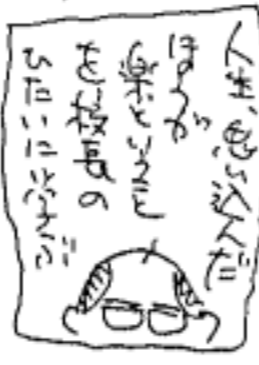 人生、思い込んだ
ほうが
楽ということ
を校長の
ひたいに学ぶ